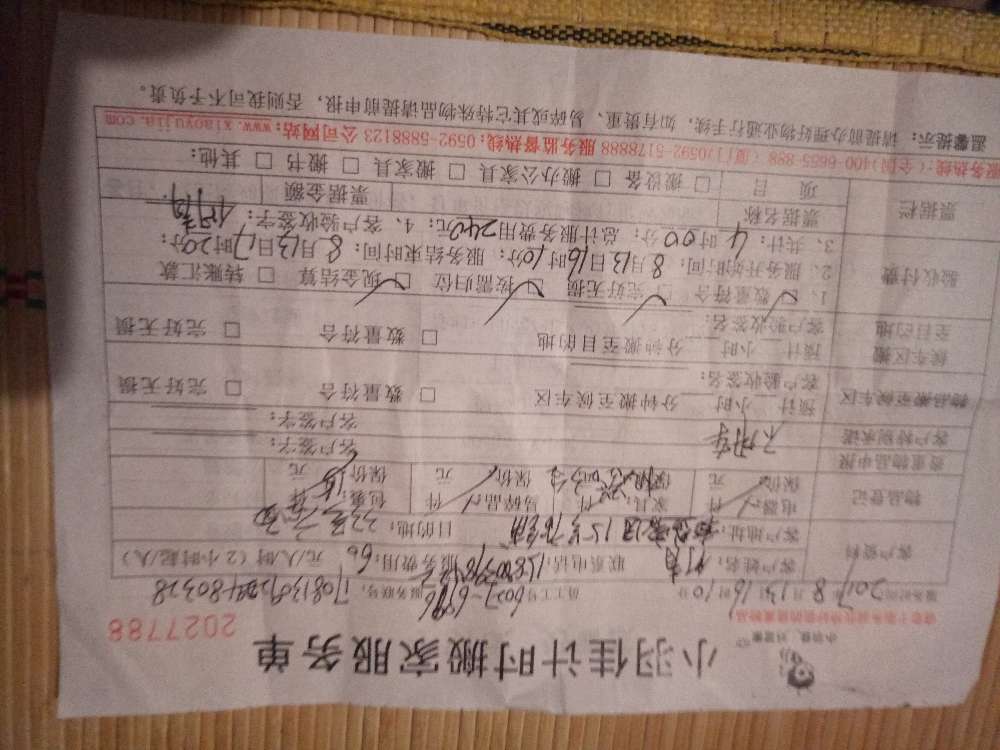 小羽佳计时搬家服务单
2027788
服务时间 2017年8月13日16时10分 员工工号 服务联号:
客户资料 客户姓名: 联系电话: 服务费用: 66 元/人/时（2小时起/人）
客户地址: 目的地:
物品登记 电器 件 家具 件 易碎品 件 包裹 件
保价 元 保价 元 保价 元
贵重物品申报 客户签字:
客户特别承诺 客户签字:
物品搬至候车区 预计 小时 分钟搬至候车区 □ 数量符合 □ 完好无损
客户验收签名:
候车区搬至目的地 预计 小时 分钟搬至目的地 □ 数量符合 □ 完好无损
客户验收签名:
验收付费 1、□ 数量符合 □ 完好无损 □ 按需归位 □ 现金结算 □ 转账汇款
2、服务开始时间: 8月13日16时10分; 服务结束时间: 8月13日17时20分;
3、共计: 4时00分; 总计服务费用240元; 4、客户验收签字:
票据栏 票据名称 票据金额
项目 □ 搬设备 □ 搬办公家具 □ 搬家具 □ 搬书 □ 其他:
服务热线:(全国)400-6655-888 (厦门)0592-5178888 服务监督热线: 0592-5888123 公司网站: www.xiaoyujia.com
温馨提示: 请提前办理好物业通行手续, 如有贵重、易碎或其它特殊物品请提前申报, 否则我司不予负责。